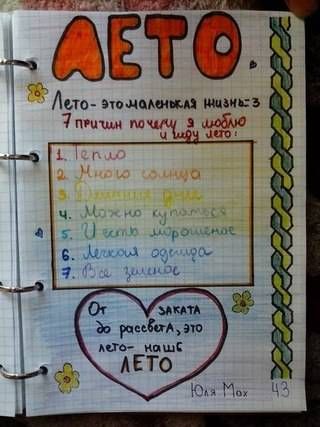 ЛЕТО.
Лето- это маленькая жизнь=3
7 причин почему я люблю
и жду лето:
1. Тепло
2. Много солнца
3. Длинные дни
4. Можно купаться
5. И есть мороженое
6. Легкая одежда
7. Все зеленое
От ЗАКАТА
до рассвета, это
лето- наше
ЛЕТО
Юля Мох 43